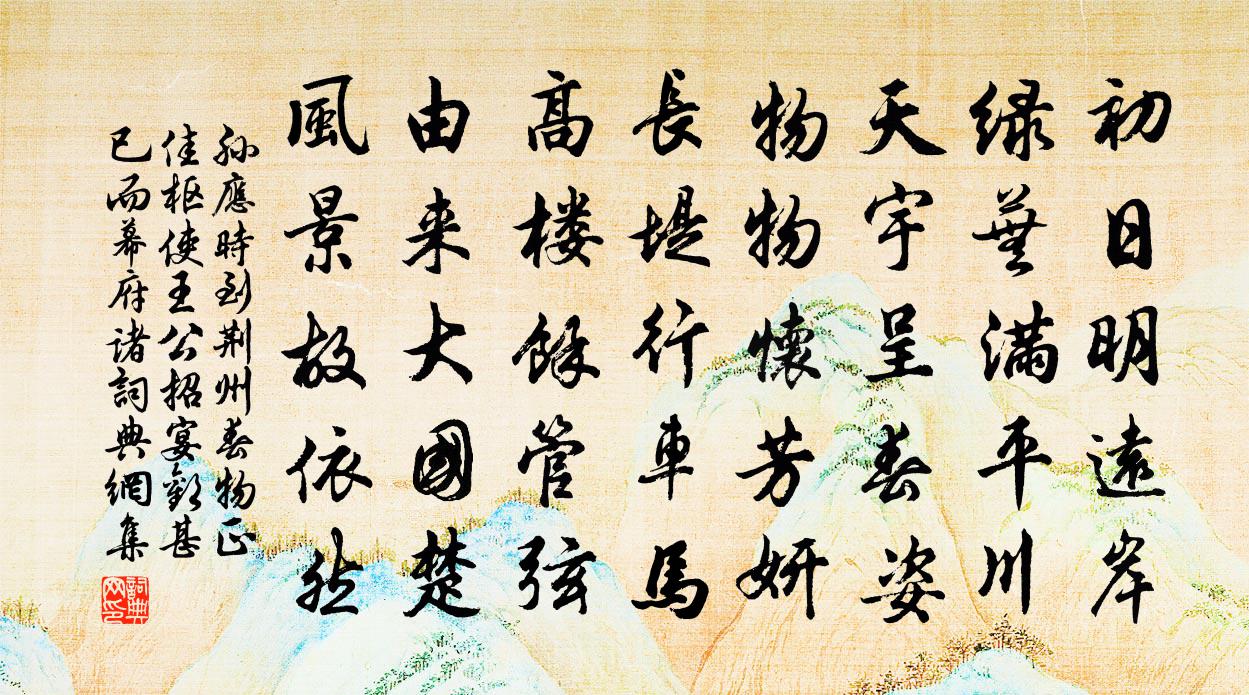 初日明遠岸
绿蕪滿平川
天宇呈春姿
物物懷芳妍
長堤行車馬
高楼餘管弦
由来大國楚
風景故依然
孫應時到荆州春物正
佳枢使王公招宴歡甚
已而幕府諸詞典網集